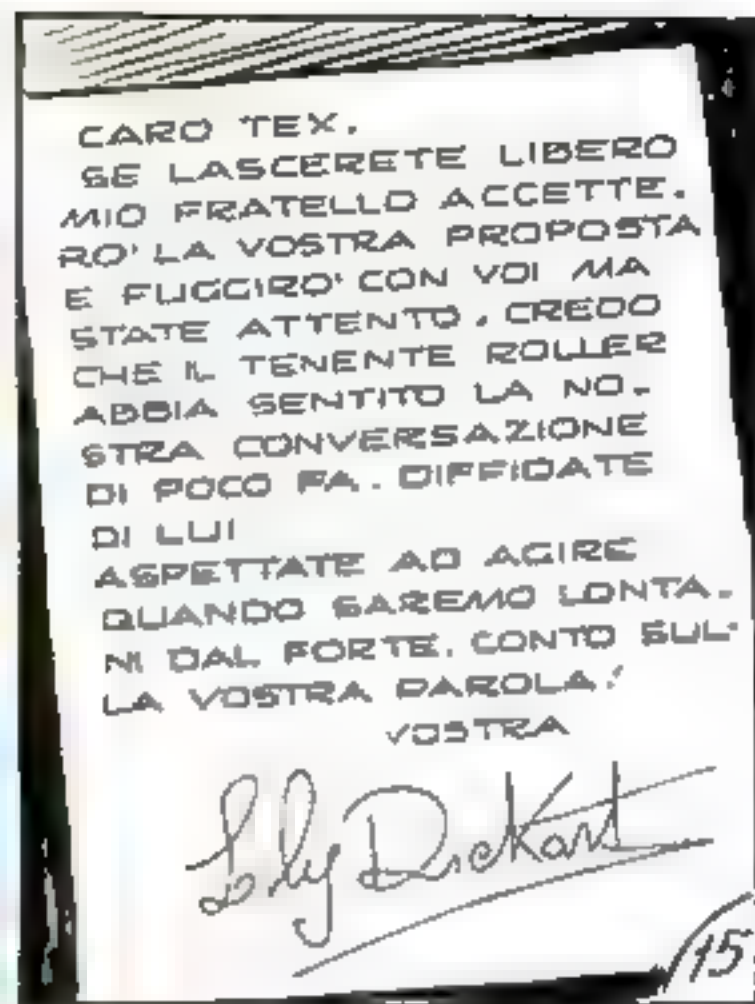 CARO TEX,
SE LASCERETE LIBERO
MIO FRATELLO ACCETTE-
RO' LA VOSTRA PROPOSTA
E FUGGIRO' CON VOI MA
STATE ATTENTO, CREDO
CHE IL TENENTE ROLLER
ABBIA SENTITO LA NO-
STRA CONVERSAZIONE
DI POCO FA. DIFFIDATE
DI LUI
ASPETTATE AD AGIRE
QUANDO SAREMO LONTA-
NI DAL FORTE. CONTO SUL-
LA VOSTRA PAROLA!
VOSTRA
Loly Dickart
15